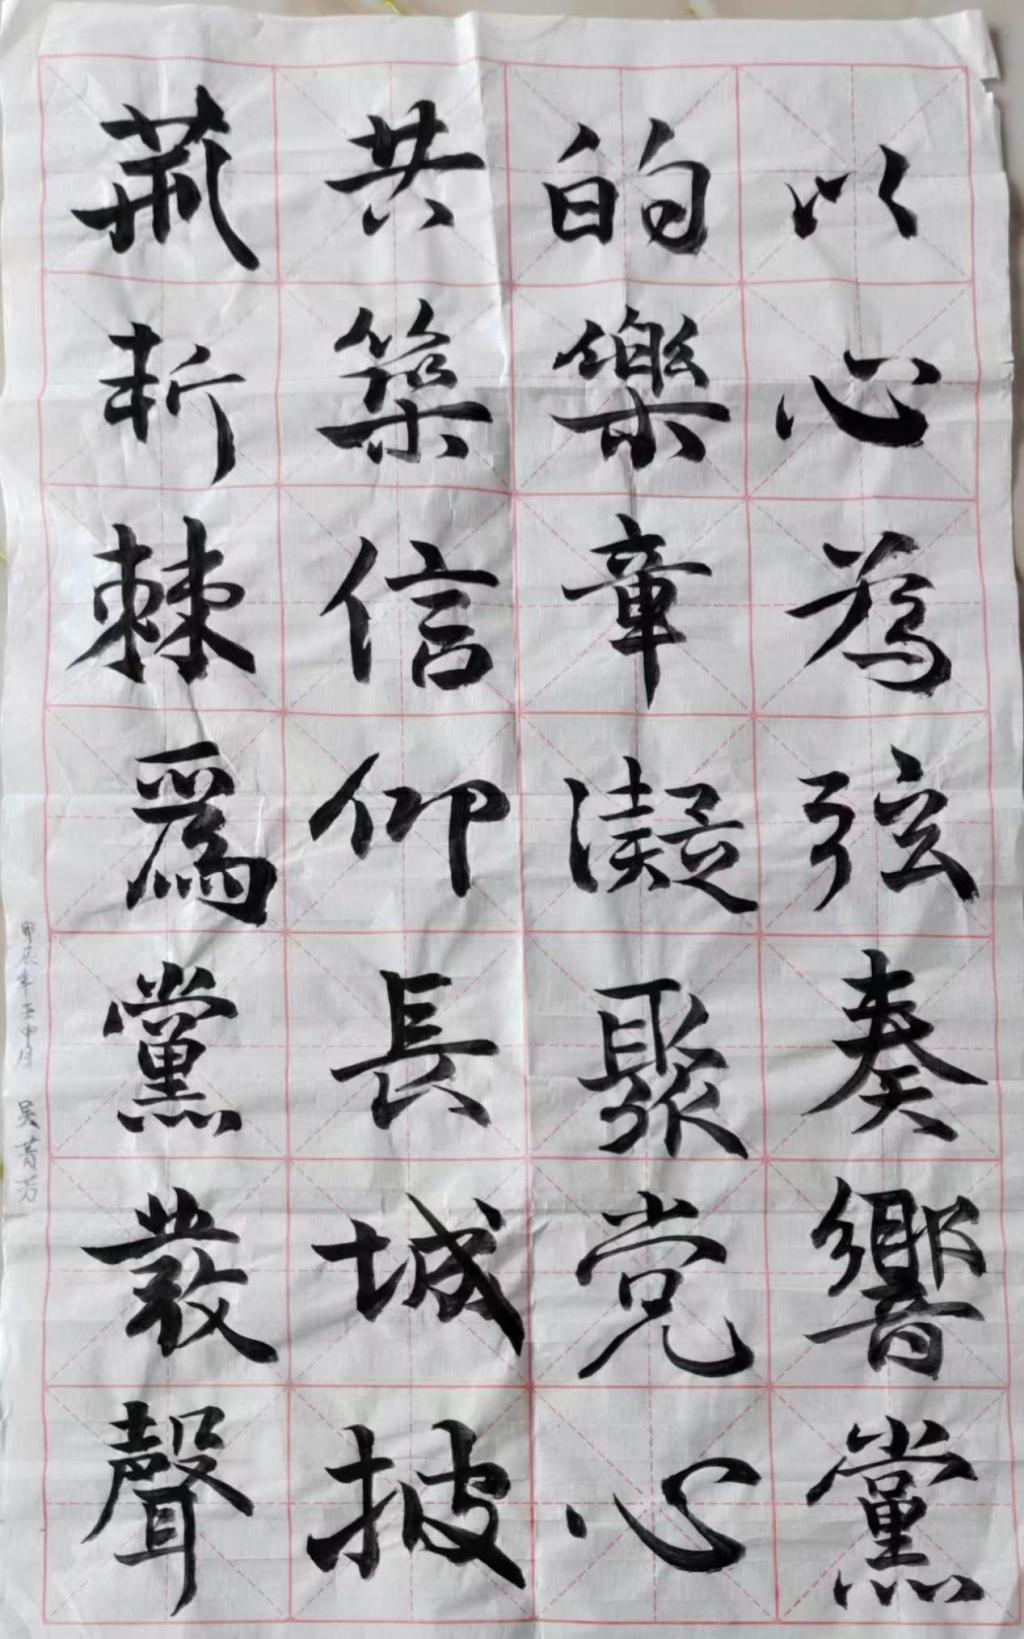 以心為弦奏響黨
的樂章凝聚党心
共築信仰長城披
荊斬棘爲黨發聲
甲辰年 吴 芳